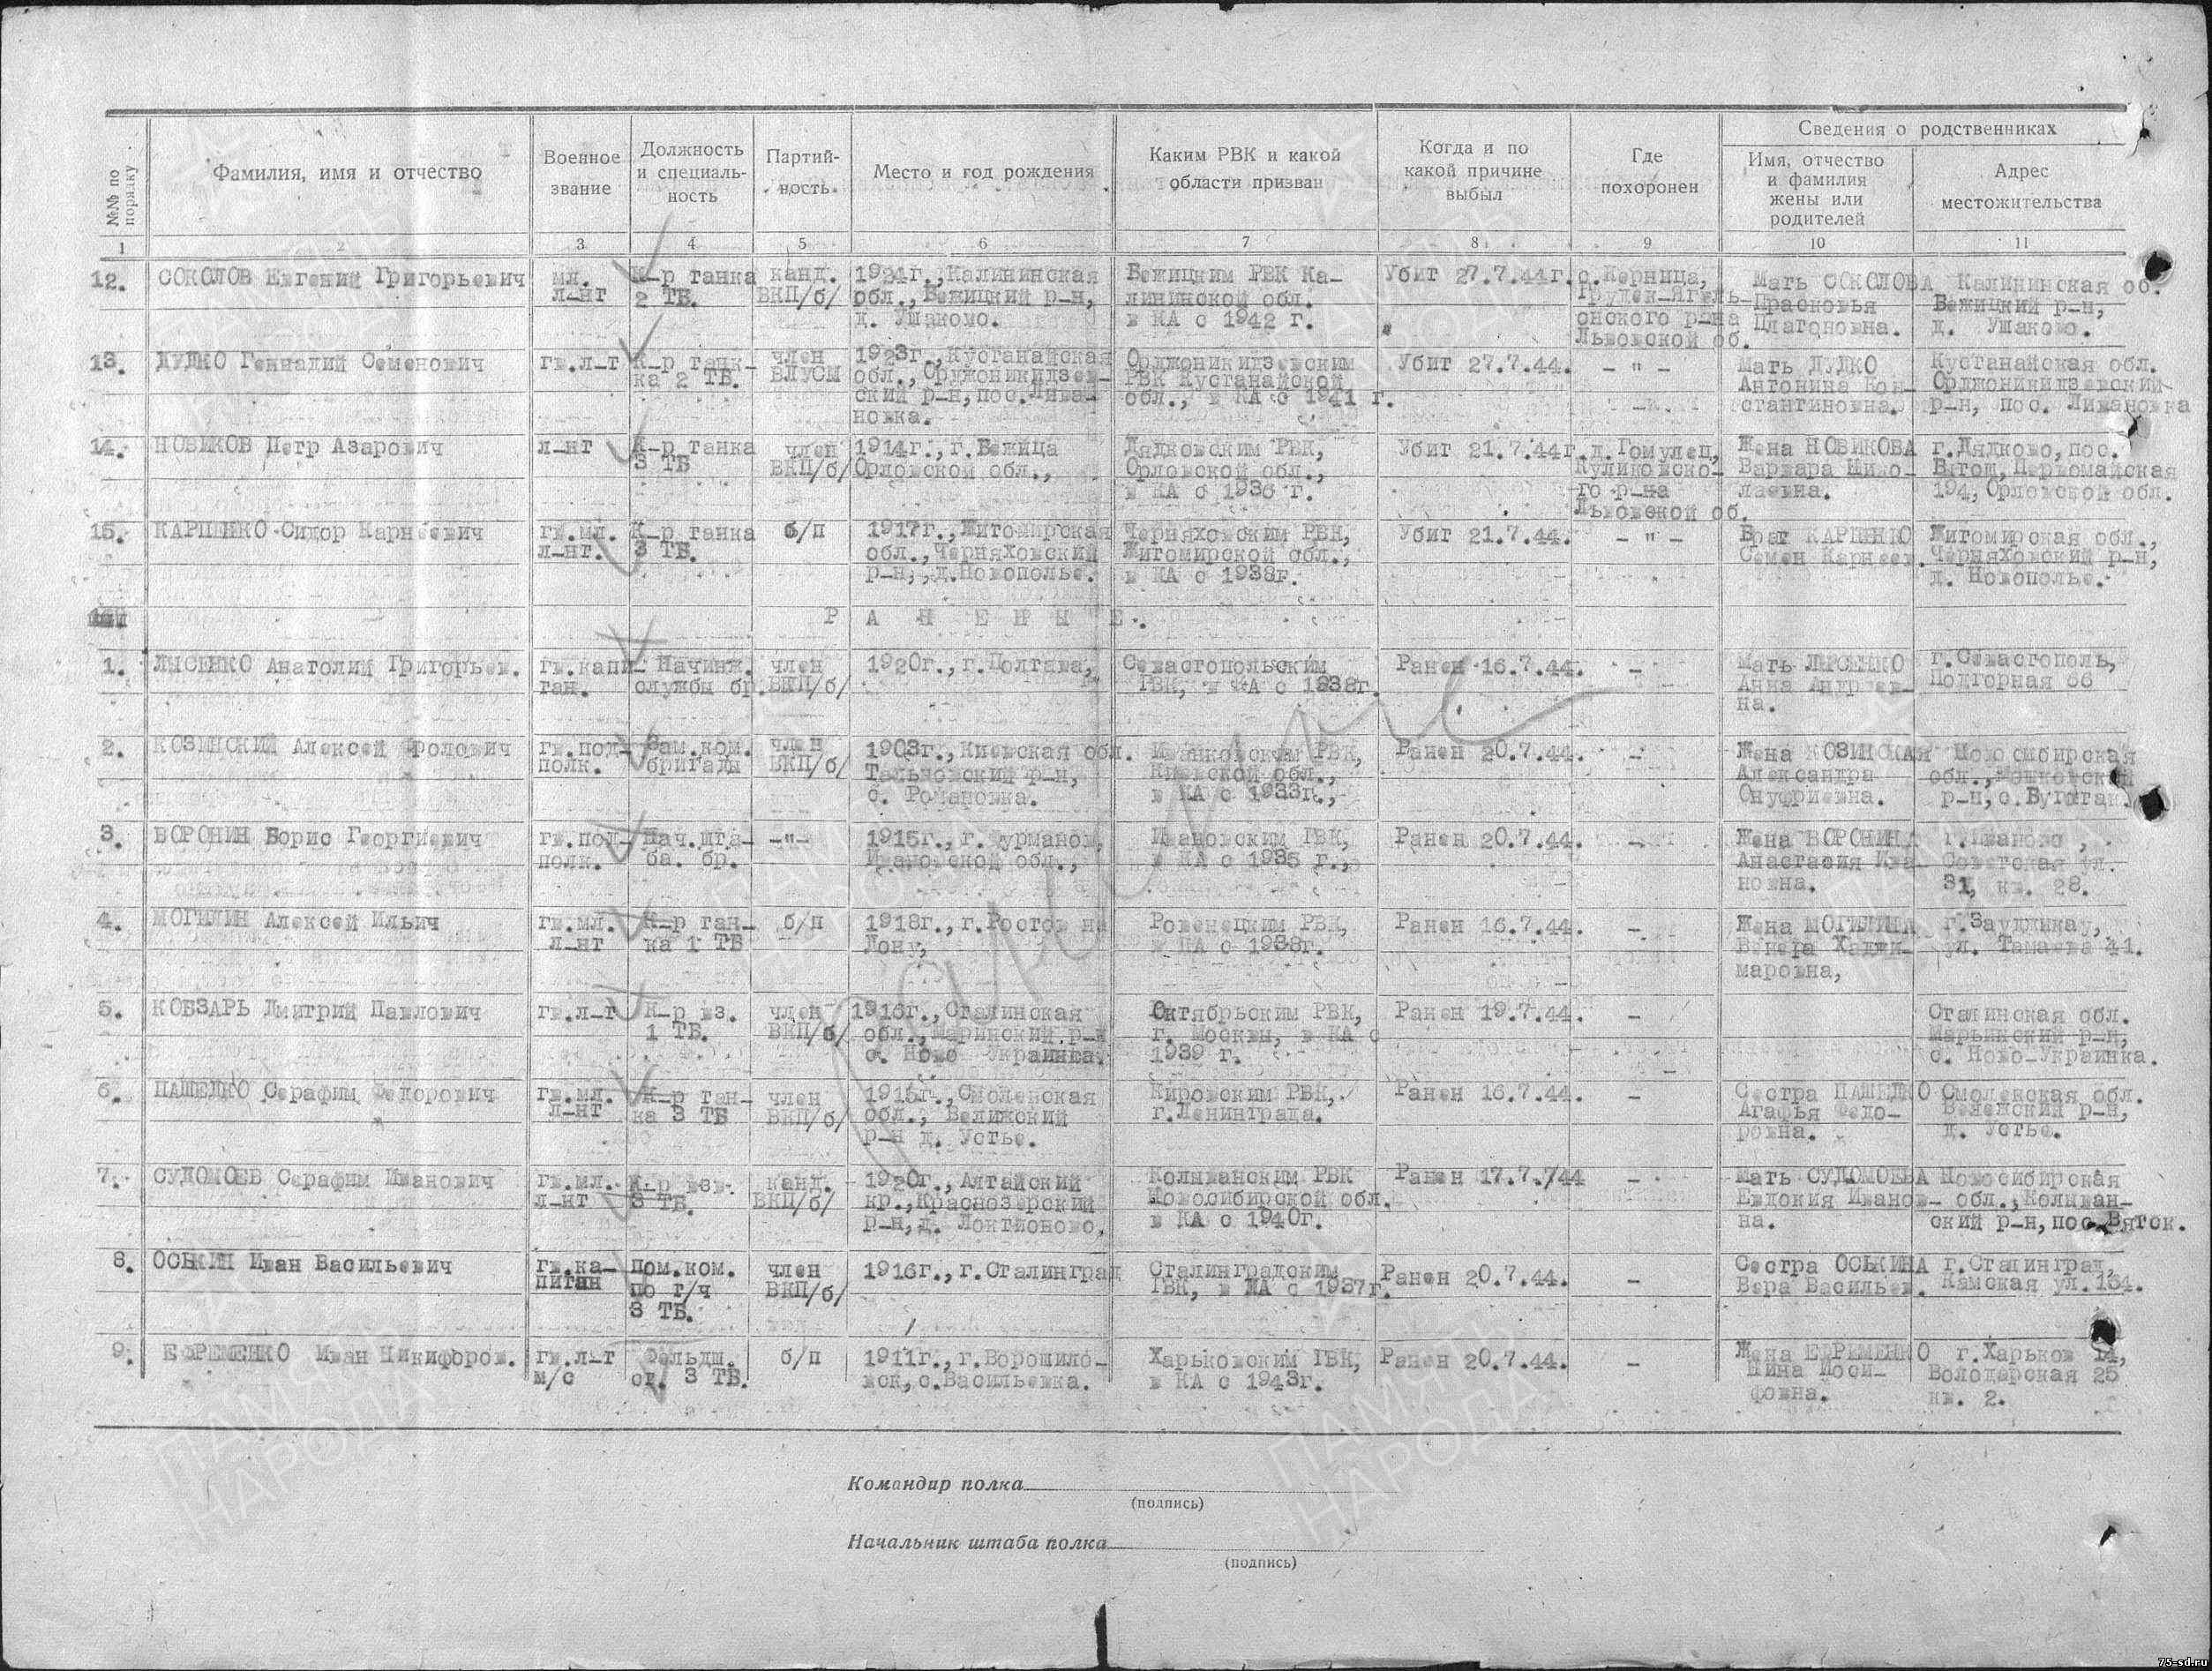 №№ по порядку
Фамилия, имя и отчество
Военное звание
Должность и специаль-
ность
Партий-
ность
Место и год рождения
Каким РВК и какой
области призван
Когда и по
какой причине
выбыл
Где
похоронен
Сведения о родственниках
Имя, отчество
и фамилия
жены или
родителей
Адрес
местожительства
1 2 3 4 5 6 7 8 9 10 11
12. СОКОЛОВ Евгений Григорьевич мл. К-р танка канд. 1924г., Калининская Бежицким РВК Ка- Убит 27.7.44г. с.Керница, Мать СОКОЛОВА Калининская об.
л-нт 2 ТБ. ВКП/б/ обл., Бежицкий р-н, лининской обл. Грудек-Ягель- Прасковья Бежицкий р-н,
д. Ушаково. в КА с 1942 г. онского р-на Платоновна. д. Ушаково.
Львовской об.
13. ДУДКО Геннадий Семенович гв.л-т К-р танк- член 1923г., Кустанайская Орджоникидзевским Убит 27.7.44. - " - Мать ДУДКО Кустанайская обл.
ка 2 ТБ. ВЛУСМ обл., Орджоникидзев- РВК Кустанайской Антонина Кон- Орджоникидзевский
ский р-н, пос. Лива- обл., в КА с 1941 г. стантиновна. р-н, пос. Ливановка
новка.
14. НОВИКОВ Петр Азарович л-нт К-р танка член 1914г., г.Бежица Дядковским РВК, Убит 21.7.44г д.Гомулец, Жена НОВИКОВА г.Дядково, пос.
3 ТБ ВКП/б/ Орловской обл., Орловской обл., Куликовско- Варвара Нико- Первомайская
в КА с 1936 г. го р-на лаевна. 194, Орловской обл.
Львовской об.
15. КАРПЕНКО Сидор Карнеевич гв.мл. К-р танка б/п 1917г., Житомирская Черняховским РВК, Убит 21.7.44. - " - Брат КАРПЕНКО Житомирская обл.,
л-нт. 3 ТБ. обл., Черняховский Житомирской обл., Семен Карнеев. Черняховский р-н,
р-н,,д.Новополье. в КА с 1938г. д. Новополье.
Р А Н Е Н Ы Е.
1. ЛЫСЕНКО Анатолий Григорьев. гв.капи- Начинж. член 1920г., г.Полтава, Севастопольским Ранен 16.7.44. - Мать ЛЫСЕНКО г.Севастополь,
тан. службы бр. ВКП/б/ РВК, в КА с 1938г. Анна Андреев- Подгорная 66
на.
2. КОЗИНСКИЙ Алексей Фролович гв.под- Зам.ком. член 1903г., Киевская обл. Иванковским РВК, Ранен 20.7.44. - Жена КОЗИНСКАЯ Новосибирская
полк. бригады ВКП/б/ Тальновский р-н, Киевской обл., Александра обл.,
с. Романовка. в КА с 1933г., Онуфриевна. р-н,
3. ВОРОНИН Борис Георгиевич гв.под- Нач.шта- -"- 1915г., г.Фурманов, Ивановским РВК, Ранен 20.7.44. - Жена ВОРОНИНА г.Иваново,
полк. ба. бр. Ивановской обл., в КА с 1935 г., Анастасия Ива- Советская ул.
новна. 31, кв. 28.
4. МОГИЛИН Алексей Ильич гв.мл. К-р тан- б/п 1918г., г.Ростов на Ровенецким РВК, Ранен 16.7.44. - Жена МОГИЛИНА г.Зауджикау,
л-нт ка 1 ТБ Дону, в КА с 1938г. Венера Хаджи- ул. Тамаева 41.
маровна,
5. КОБЗАРЬ Дмитрий Павлович гв.л-т К-р вз. член 1916г., Сталинская Октябрьским РВК, Ранен 19.7.44. - Сталинская обл.
1 ТБ. ВКП/б/ обл., Маринский р-н г. Москвы, в КА с Марьинский р-н,
с. Ново Украинка. 1939 г. с. Ново-Украинка.
6. ПАШЕДКО Серафим Федорович гв.мл. К-р тан- член 1915г., Смоленская Кировским РВК, Ранен 16.7.44. - Сестра ПАШЕДКО Смоленская обл.
л-нт ка 3 ТБ ВКП/б/ обл., Велижский г.Ленинграда. Агафья Федо- р-н,
р-н д. Устье. ровна. д. Устье.
7. СУДОМОЕВ Серафим Иванович гв.мл. К-р взв. канд. 1920г., Алтайский Колыванским РВК Ранен 17.7./44 - Мать СУДОМОЕВА Новосибирская
л-нт 3 ТБ. ВКП/б/ кр., Краснозерский Новосибирской обл. Евдокия Иванов- обл., Колыван-
р-н, д. Локтионово, в КА с 1940г. на. ский р-н, пос. Вяток.
8. ОСЬКИН Иван Васильевич гв.ка- Пом.ком. член 1916г., г.Сталинград Сталинградским Ранен 20.7.44. - Сестра ОСЬКИНА г.Сталинград,
питан по т/ч ВКП/б/ РВК, в КА с 1937г. Вера Васильев. Камская ул. 134.
3 ТБ.
9. ЕФРЕМЕНКО Иван Никифоров. гв.л-т Фельдш. б/п 1911г., г.Ворошило- Харьковским РВК, Ранен 20.7.44. - Жена ЕФРЕМЕНКО г.Харьков 14,
м/с ст. 3 ТБ. вск, с.Васильевка. в КА с 1943г. Нина Иоси- Володарская 25
фовна. кв. 2.
Командир полка
(подпись)
Начальник штаба полка
(подпись)
ПАМЯТЬ
НАРОДА
75-sd.ru